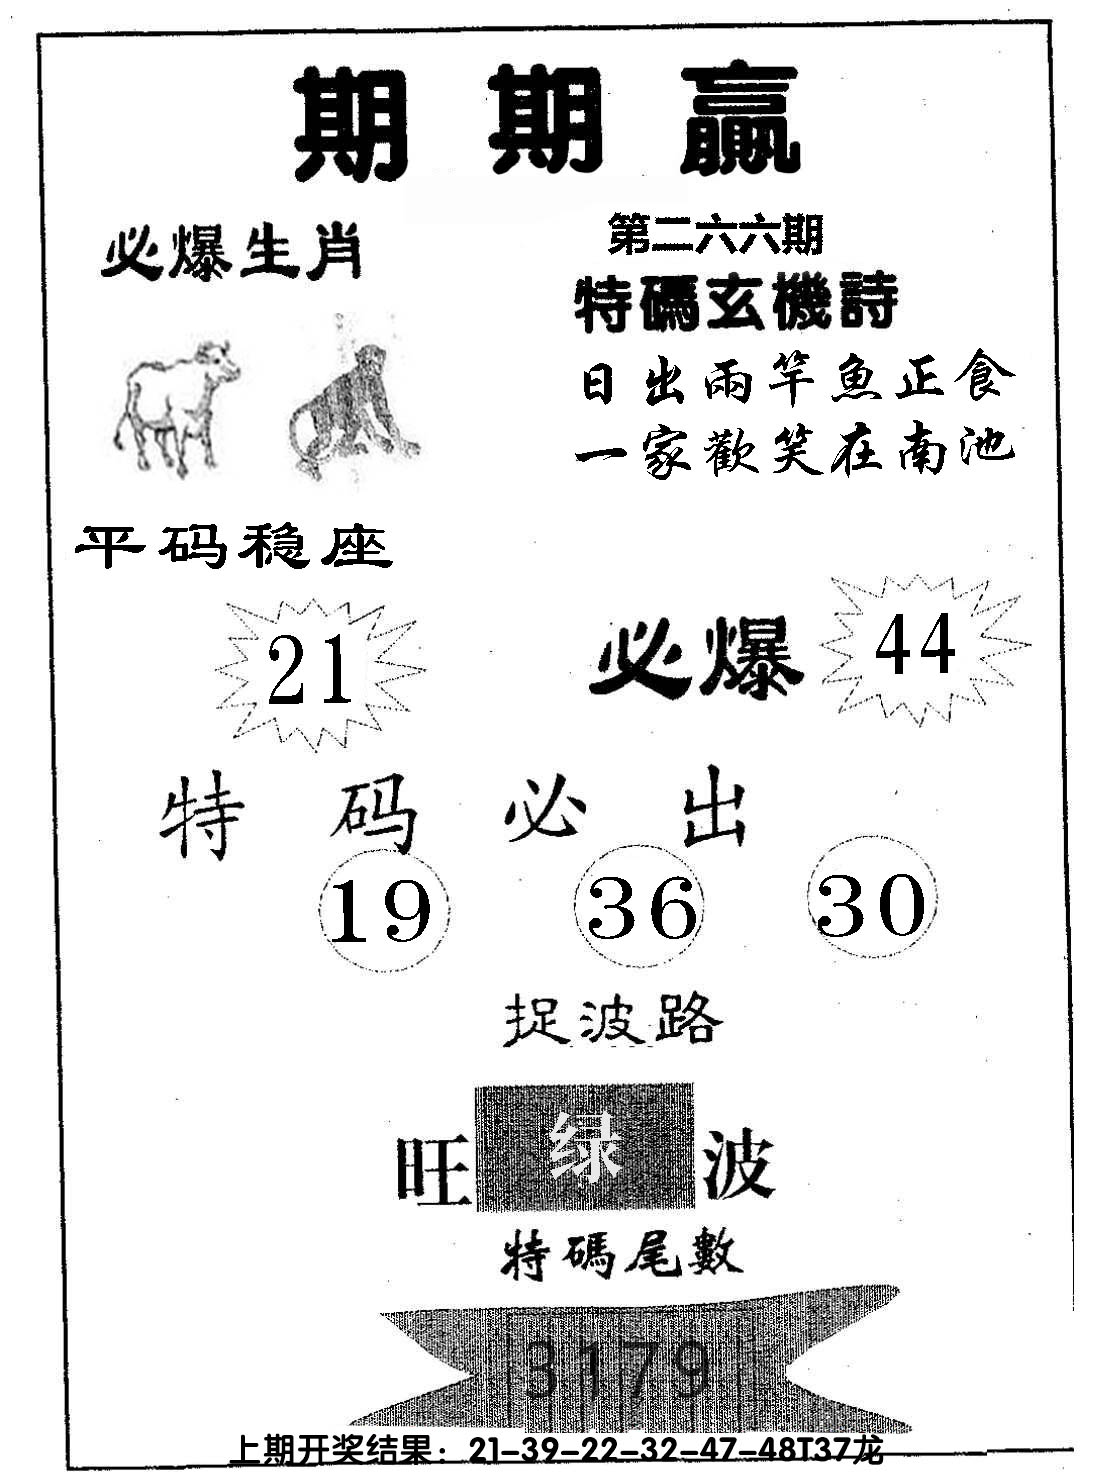 期期贏
必爆生肖
第二六六期
特碼玄機詩
日出兩竿魚正食
一家歡笑在南池
平码稳座
21
必爆 44
特码必出
19 36 30
捉波路
旺绿波
特碼尾數
3179
上期开奖结果：21-39-22-32-47-48T37龙